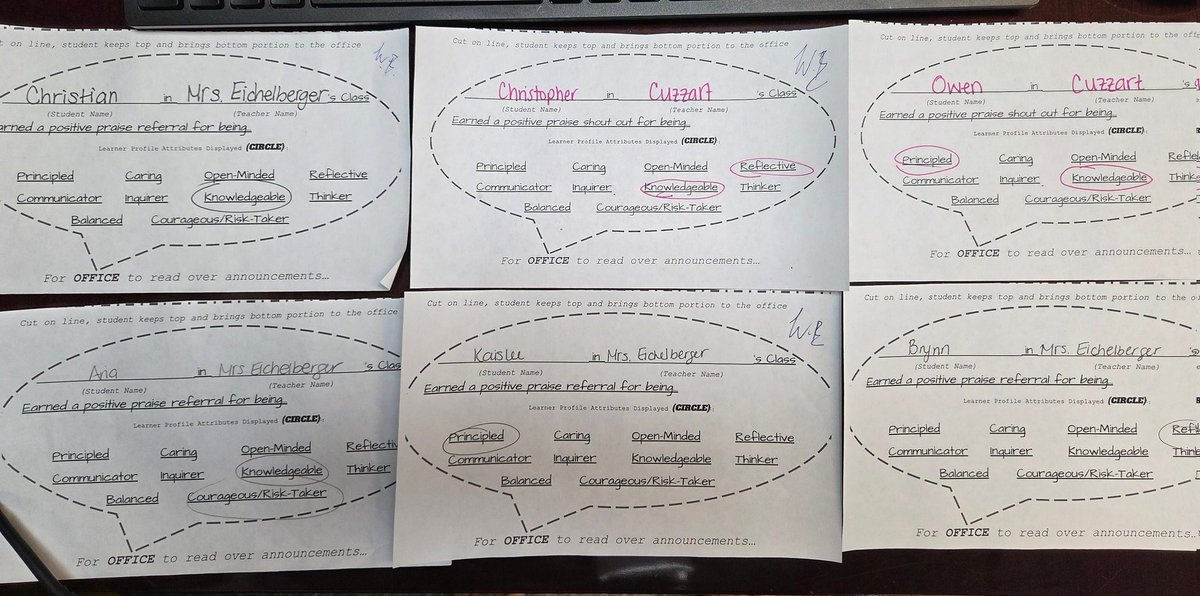 t on line, student keeps top and brings bottom portion to the office
W.E.
Christian in Mrs. Eichelberger's Class
(Student Name) (Teacher Name)
Earned a positive praise referral for being
Learner Profile Attributes Displayed (CIRCLE):
Principled Caring Open-Minded Reflective
Communicator Inquirer Knowledgeable Thinker
Balanced Courageous/Risk-Taker
For OFFICE to read over announcements…
Cut on line, student keeps top and brings bottom portion to the office
W.E
Christopher in Cuzzart's Class
(Student Name) (Teacher Name)
Earned a positive praise shout out for being
Learner Profile Attributes Displayed (CIRCLE):
Principled Caring Open-Minded Reflective
Communicator Inquirer Knowledgeable Thinker
Balanced Courageous/Risk-Taker
For OFFICE to read over announcements…
Cut on line, student keeps top and brings bottom portion to the o
Owen in Cuzzart's
(Student Name) (Teacher Name)
Earned a positive praise shout out for being
Learner Profile Attributes Displayed (CIRCLE):
Principled Caring Open-Minded Refle
Communicator Inquirer Knowledgeable Think
Balanced Courageous/Risk-Taker
For OFFICE to read over announcements…
Cut on line, student keeps top and brings bottom portion to the office
Ana in Mrs Eichelberger's Clas
(Student Name) (Teacher Name)
Earned a positive praise referral for being
Learner Profile Attributes Displayed (CIRCLE):
Principled Caring Open-Minded Reflective
Communicator Inquirer Knowledgeable Thinker
Balanced Courageous/Risk-Taker
For OFFICE to read over announcements…
Cut on line, student keeps top and brings bottom portion to the office
W.E
Kaislee in Mrs. Eichelberger's Class
(Student Name) (Teacher Name)
Earned a positive praise referral for being
Learner Profile Attributes Displayed (CIRCLE):
Principled Caring Open-Minded Reflective
Communicator Inquirer Knowledgeable Thinker
Balanced Courageous/Risk-Taker
For OFFICE to read over announcements…
Cut on line, student keeps top and brings bottom portion to the o
Brynn in Mrs. Eichelberger's
(Student Name) (Teacher Name)
Earned a positive praise referral for being
Learner Profile Attributes Displayed (CIRCLE):
Principled Caring Open-Minded Refl
Communicator Inquirer Knowledgeable Thin
Balanced Courageous/Risk-Taker
For OFFICE to read over announcements…